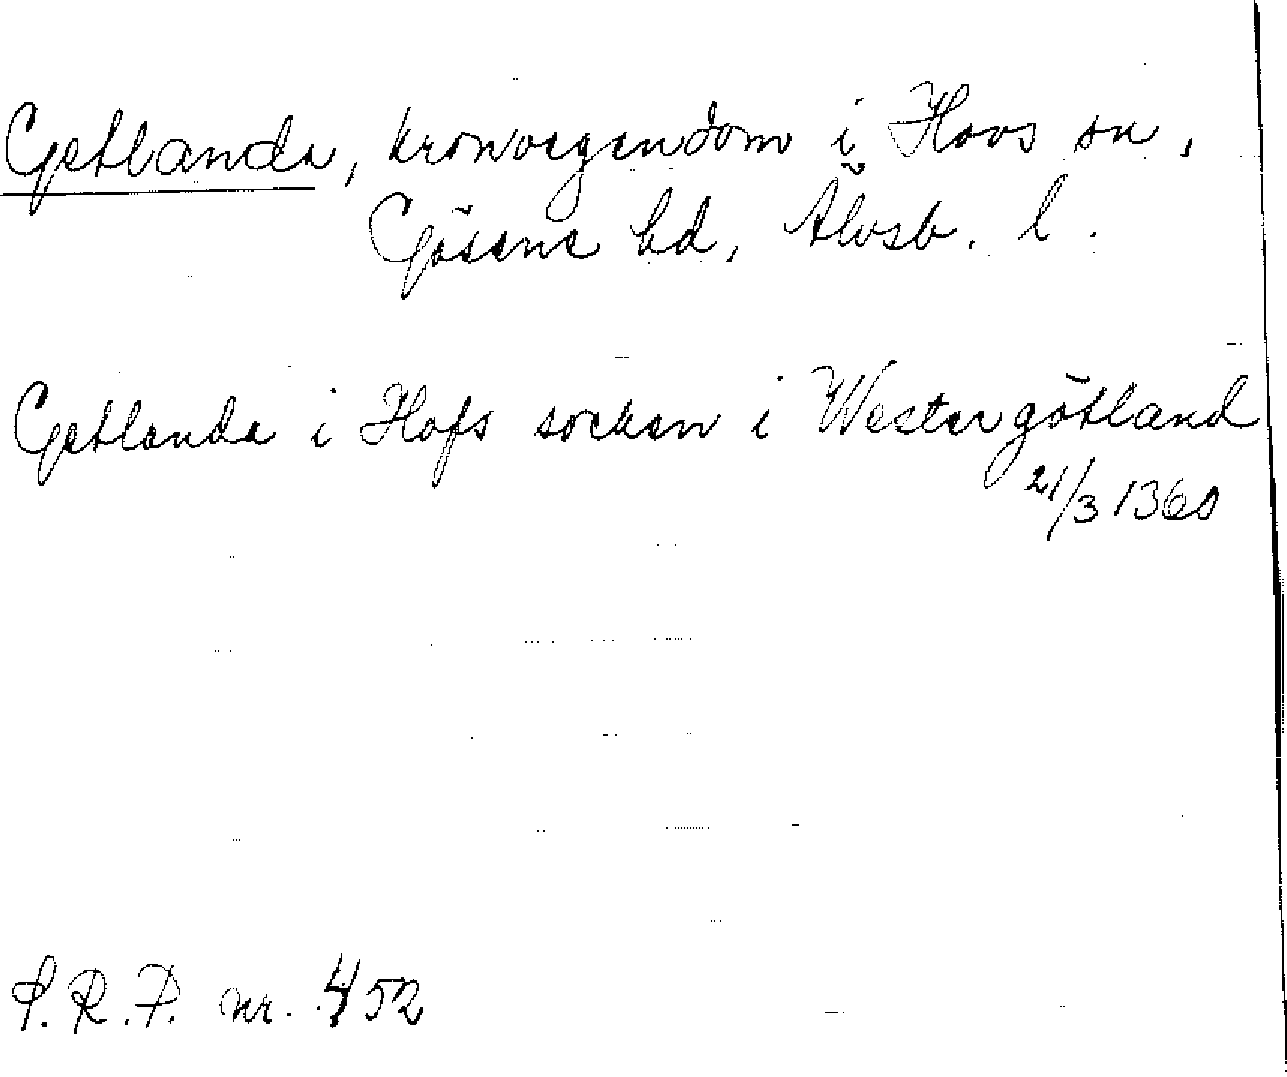 Getlanda, kronoegendom i Hovs sn,
Gäsene hd, Älvsb. l.
Getlanda i Hofs socken i Westergötland
21/3 1360
S.R.P. nr. 452